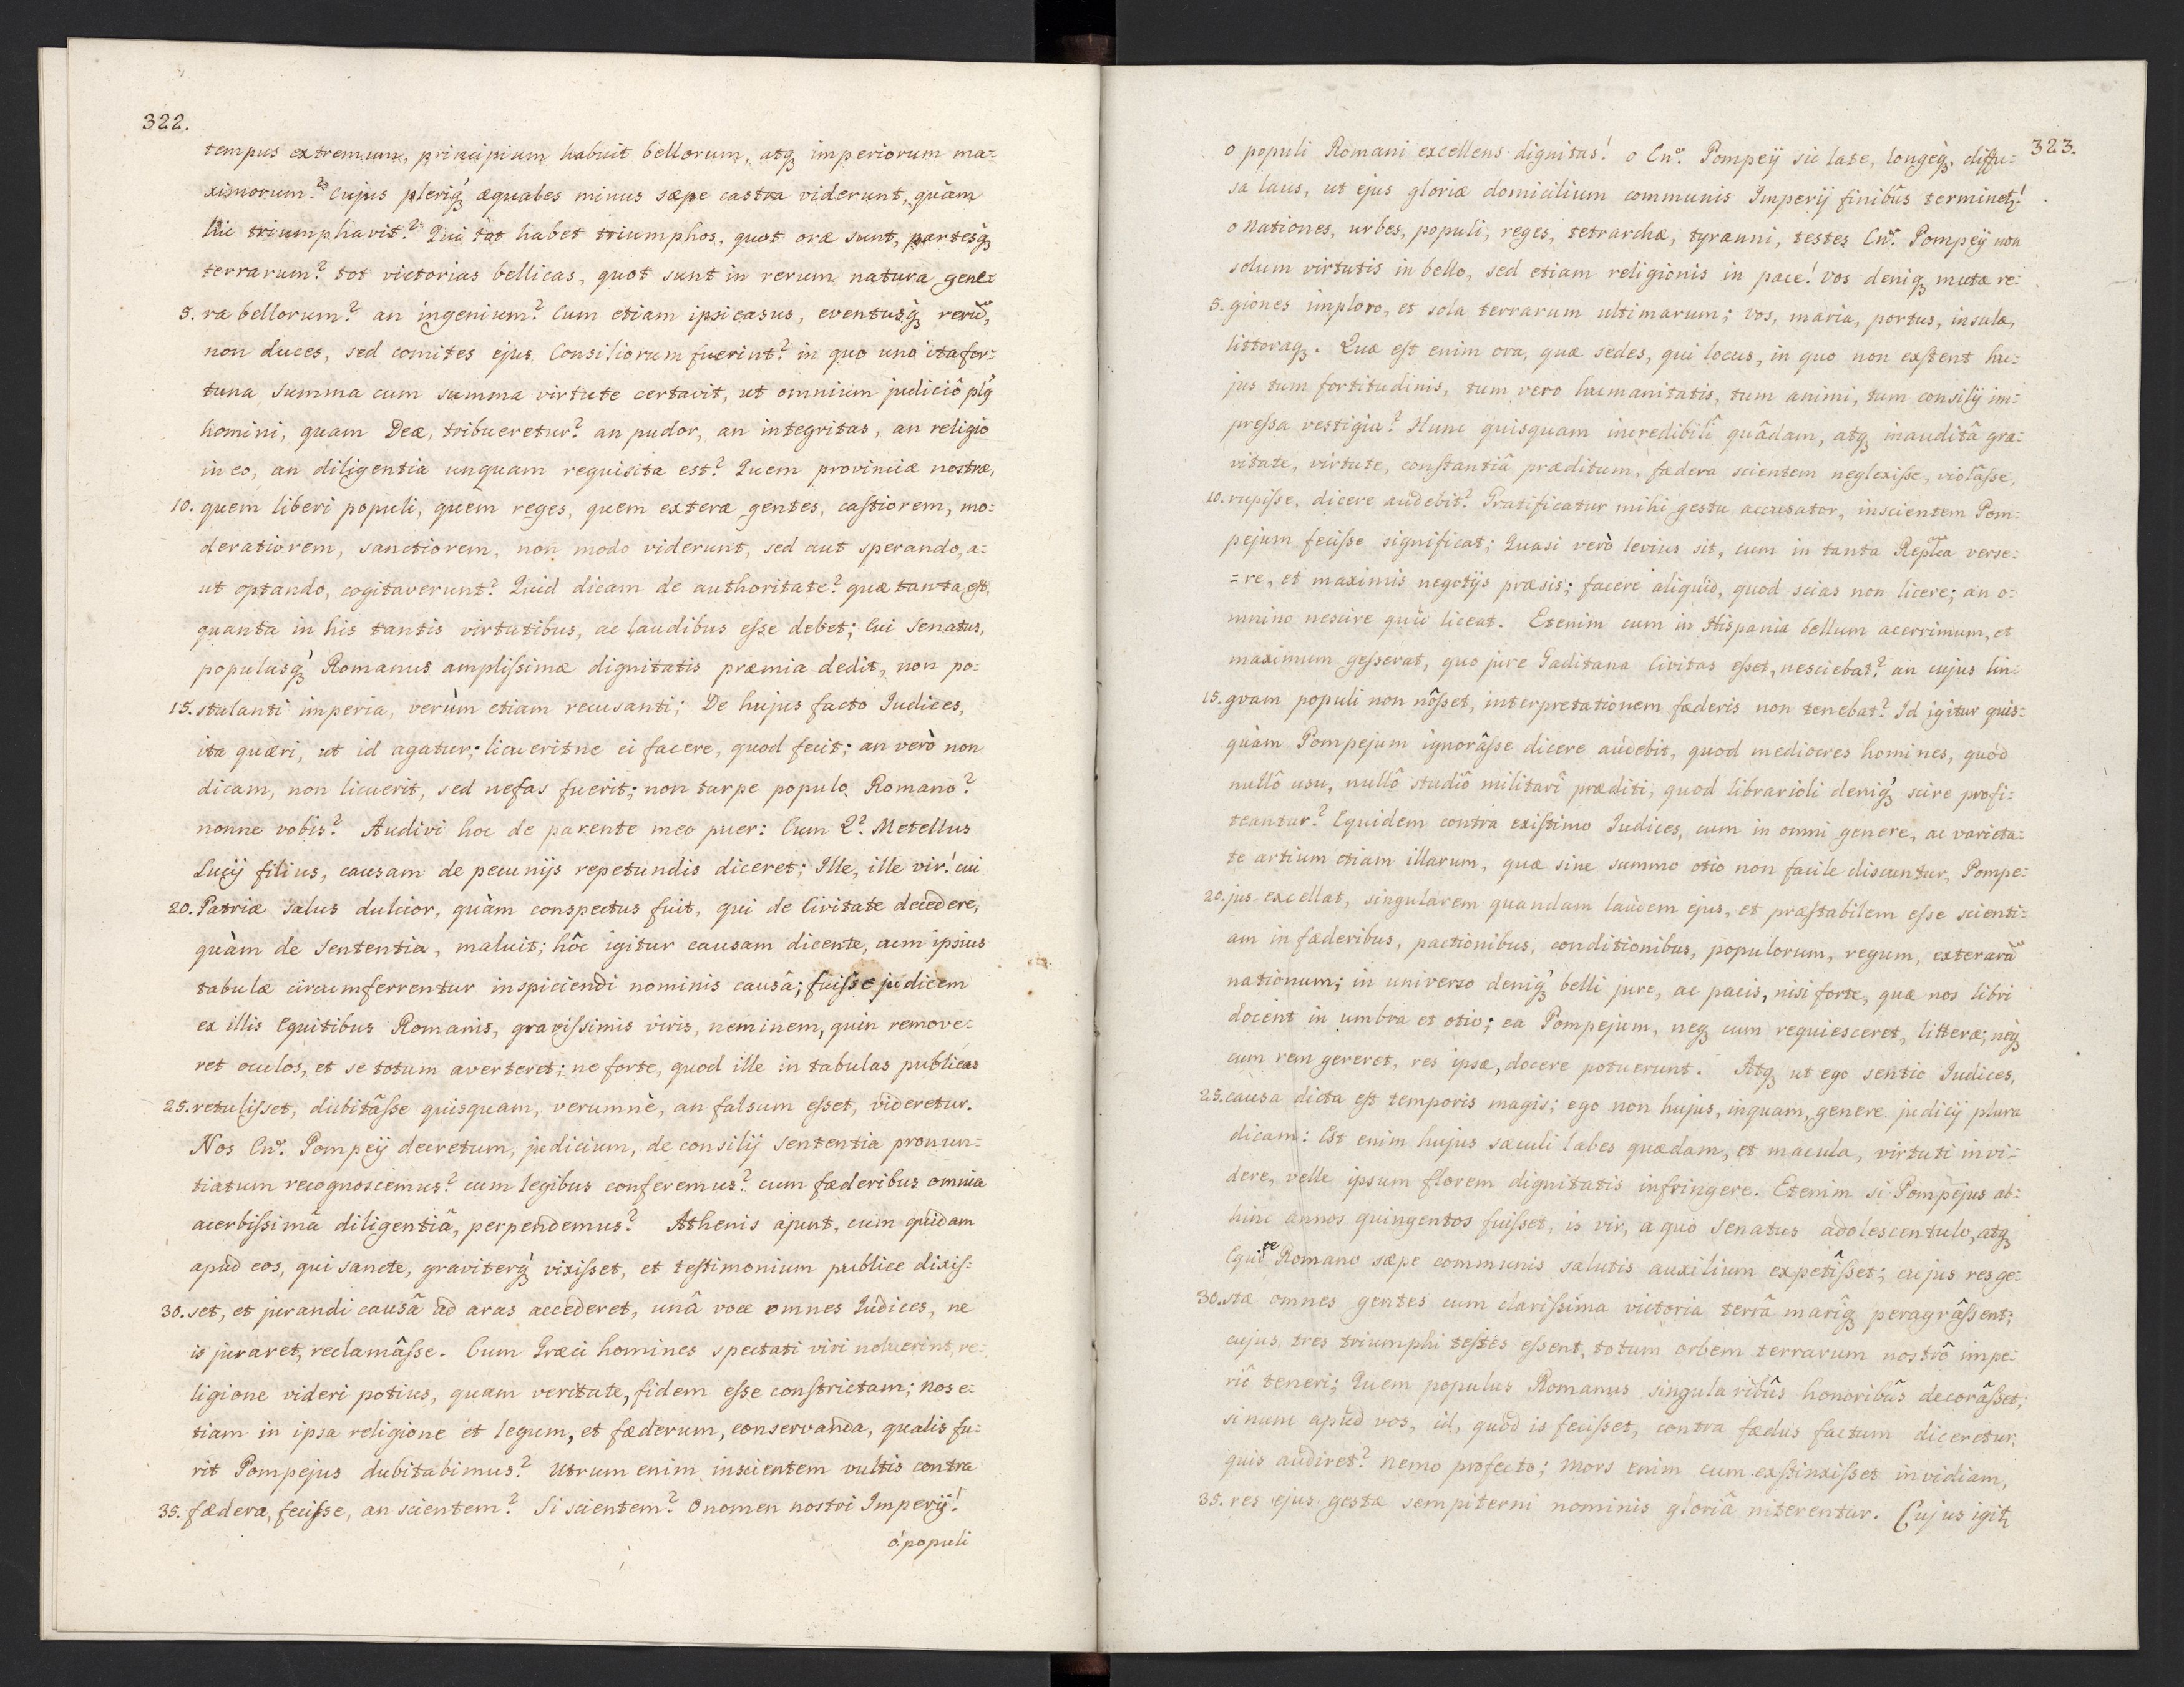 322.
tempus extremum, principium habuit bellorum, atq3 imperiorum ma=
ximorum? Cujus pleriq3 æquales minus sæpe castra viderunt, quàm
hic triumphavit? Qui tot habet triumphos, quot oræ sunt, partesq3
terrarum? tot victorias bellicas, quot sunt in rerum natura gene=
5. ra bellorum? an ingenium? Cum etiam ipsi casus, eventusq3 rerũ,
non duces, sed comites ejus Consiliorum fuerint? in quo uno ita for=
tuna summa cum summa virtute certavit, ut omnium judiciô plq
homini, quam Deæ, tribueretur? an pudor, an integritas, an religio
in eo, an diligentia unquam requisita est? Quem provinciæ nostræ,
10. quem liberi populi, quem reges, quem exteræ gentes, castiorem, mo=
deratiorem, sanctiorem, non modo viderunt, sed aut sperando, a=
ut optando, cogitaverunt? Quid dicam de authoritate? quæ tanta est,
quanta in his tantis virtutibus, ac laudibus esse debet; Cui Senatus,
populusq3 Romanus amplissimæ dignitatis præmia dedit, non po=
15. stulanti imperia, verùm etiam recusanti; De hujus facto Iudices,
ita quæri, ut id agatur; licueritne ei facere, quod fecit; an verò non
dicam, non licuerit, sed nefas fuerit; non turpe populo Romano?
nonne vobis? Audivi hoc de parente meo puer: Cum Q? Metellus
Lucÿ filius, causam de pecunijs repetundis diceret; Ille, ille vir! cui
20. Patriæ salus dulcior, quàm conspectus fuit, qui de Civitate decedere,
quàm de Sententia, maluit; hôc igitur causam dicente, cum ipsius
tabulæ circumferrentur inspiciendi nominis causâ; fuisse judicem
ex illis Equitibus Romanis, gravissimis viris, neminem, quin remove=
ret oculos, et se totum averteret; ne forte, quod ille in tabulas publicas
25. retulisset, dubitâsse quisquam, verumnè, an falsum esset, videretur.
Nos Cn. Pompeÿ decretum, judicium, de consilÿ sententia pronun=
tiatum recognoscemus? cum legibus conferemus? cum fæderibus omnia
acerbissimâ diligentiâ, perpendemus? Athenis ajunt, cum quidam
apud eos, qui sancte, graviterq3 vixisset, et testimonium publice dixis=
30. set, et jurandi causâ ad aras accederet, unâ voce omnes Iudices, ne
is juraret, reclamâsse. Cum Græci homines spectati viri noluerint, re=
ligione videri potius, quam veritate, fidem esse constrictam; nos e=
tiam in ipsa religione et legum, et fæderum, conservanda, qualis fu=
rit Pompejus dubitabimus? Utrum enim inscientem vultis contra
35. fædera, fecisse, an scientem? Si scientem? O nomen nostri Imperÿ!
ó populi
323.
o populi Romani excellens dignitas! o Cn. Pompeÿ sic late, longeq3, diffu=
sa laus, ut ejus gloriæ domicilium communis Imperÿ finibûs terminet!
o Nationes, urbes, populi, reges, tetrarchæ, tyranni, testes Cn. Pompeÿ non
solum virtutis in bello, sed etiam religionis in pace! vos deniq3 mutæ re=
5. giones imploro, et sola terrarum ultimarum; vos, maria, portus, insulæ,
littoraq3. Quæ est enim ora, quæ sedes, qui locus, in quo non exstent hu=
jus tum fortitudinis, tum vero humanitatis, tum animi, tum consilÿ im=
pressa vestigia? Hunc quisquam incredibili quâdam, atq3 inauditâ gra=
vitate, virtute, constantiâ præditum, fædera scientem neglexisse, violâsse,
10. rupisse, dicere audebit? Gratificatur mihi gestu accusator, inscientem Pom=
pejum fecisse significat; Quasi verò levius sit, cum in tanta Replca verse=
=re, et maximis negotÿs præsis; facere aliquid, quod scias non licere; an o=
mnino nescire quid liceat. Etenim cum in Hispania bellum acerrimum, et
maximum gesserat, quo jure Gaditana Civitas esset, nesciebat? an cujus lin=
15. gvam populi non nôsset, interpretationem fæderis non tenebat? Id igitur quis=
quàm Pompejum ignorâsse dicere audebit, quod mediocres homines, quod
nullô usu, nullô studiô militari præditi; quod librarioli deniq3 scire profi=
teantur? Equidem contra existimo Iudices, cum in omni genere, ac varieta=
te artium etiam illarum, quæ sine summo otio non facile discuntur, Pompe=
20. jus excellat, singularem quandam laudem ejus, et præstabilem esse scienti=
am in fæderibus, pactionibus, conditionibus, populorum, regum, exterarũ
nationum; in universo deniq3 belli jure, ac pacis, nisi forte, quæ nos libri
docent in umbra et otio; ea Pompejum, neq3 cum requiesceret, litteræ; neq3
cum rem gereret, res ipsæ, docere potuerunt. Atq3 ut ego sentio Iudices,
25. causa dicta est temporis magis; ego non hujus, inquam, genere judicÿ plura
dicam: Est enim hujus sæculi labes quædam, et macula, virtuti invi=
dere, velle ipsum florem dignitatis infringere. Etenim si Pompejus ab=
hinc annos quingentos fuisset, is vir, a quo Senatus adolescentulo, atq3
Equite Romano sæpe communis salutis auxilium expetîsset; cujus res ge=
30. stæ omnes gentes cum clarissima victoria terrâ mariq3 peragrâssent;
cujus tres triumphi testes essent, totum orbem terrarum nostrô impe=
riô teneri; Quem populus Romanus singularibûs honoribûs decorâsset;
si nunc apud vos, id, quod is fecisset, contra fædus factum diceretur,
quis audiret? nemo profecto; Mors enim cum exstinxisset invidiam,
35. res ejus gestæ sempiterni nominis gloriâ niterentur. Cujus igit